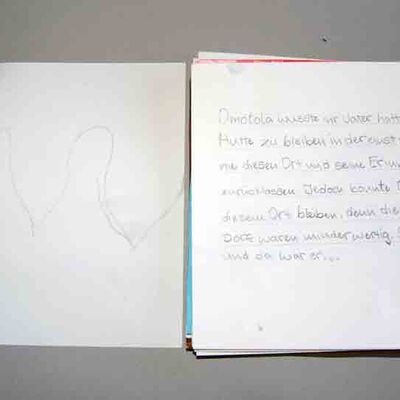 Omotola wusste ihr Vater hatt
Hütte zu bleiben in der einst
nie diesen Ort und seine Erinn
zurücklassen Jedoch konnte
diesem Ort bleiben, denn die
Dorf waren minderwertig.
und da war er...